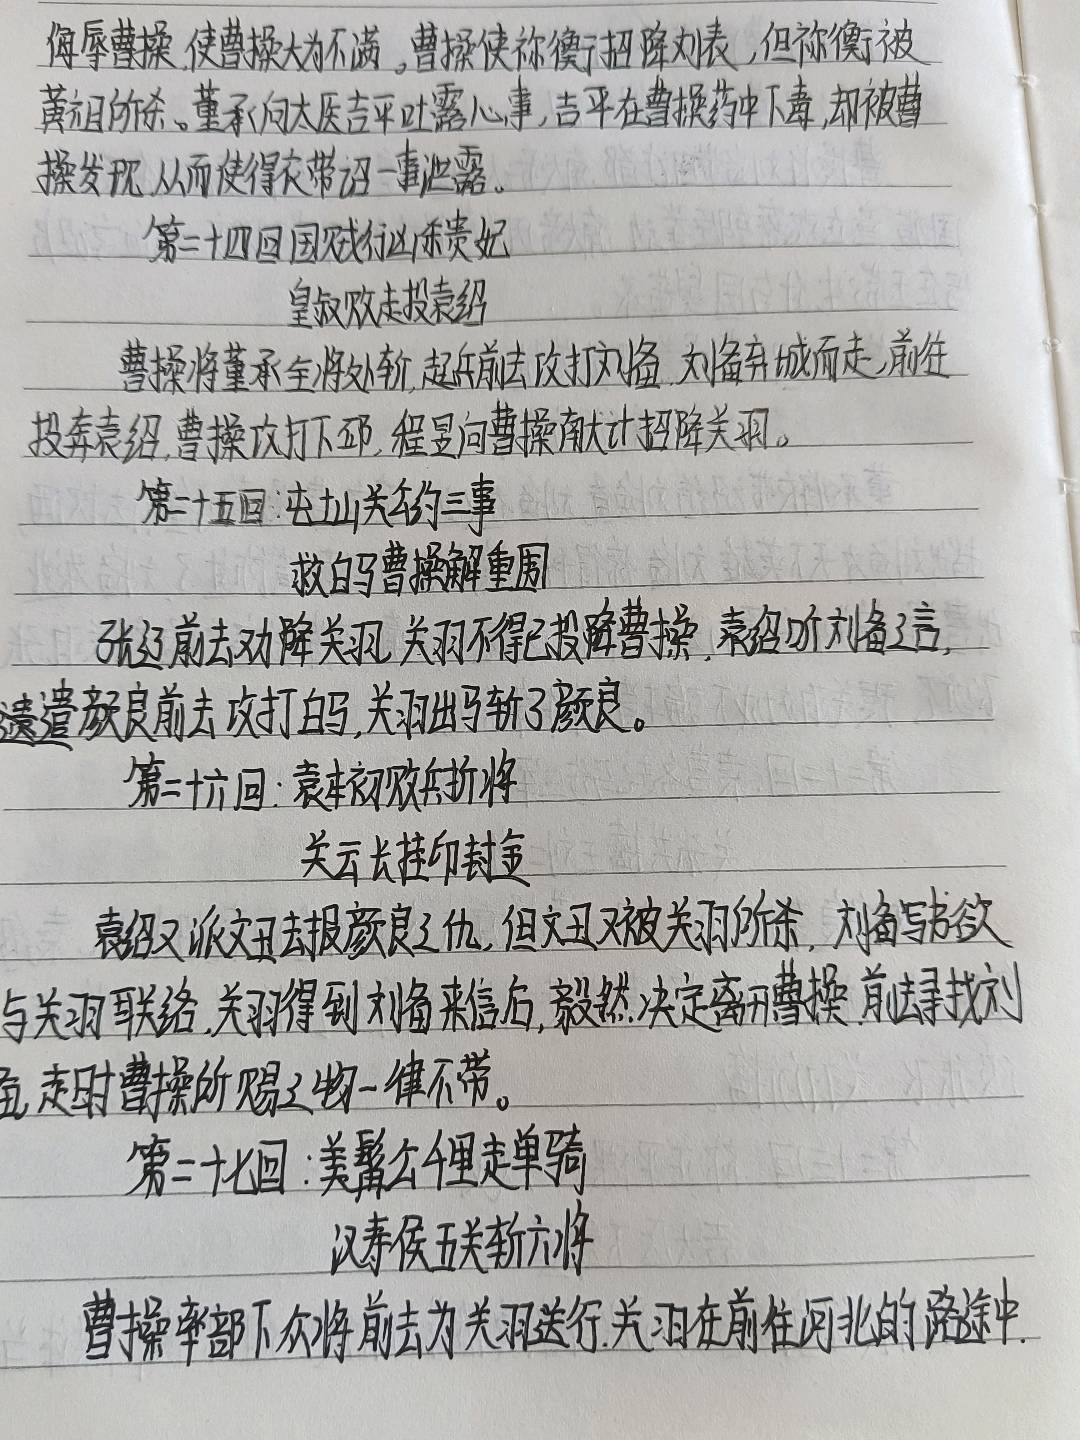 侮辱曹操,使曹操大为不满。曹操使祢衡招降刘表,但祢衡被
黄祖所杀。董承向太医吉平吐露心事,吉平在曹操药中下毒,却被曹
操发现,从而使得衣带诏一事泄露。
第二十四回国贼行凶杀贵妃
皇叔败走投袁绍
曹操将董承全将处斩,起兵前去攻打刘备,刘备弃城而走,前往
投奔袁绍,曹操攻打下邳,程昱向曹操献计招降关羽。
第二十五回:屯土山关公约三事
救白马曹操解重围
张辽前去劝降关羽,关羽不得已投降曹操,袁绍听刘备之言,
遣颜良前去攻打白马,关羽出马斩了颜良。
第二十六回:袁本初败兵折将
关云长挂印封金
袁绍又派文丑去报颜良之仇,但文丑又被关羽所杀,刘备写书欲
与关羽联络,关羽得到刘备来信后,毅然决定离开曹操,前去寻找刘
备,走时曹操所赐之物一律不带。
第二十七回:美髯公千里走单骑
汉寿侯五关斩六将
曹操率部下众将前去为关羽送行,关羽在前往河北的路途中,